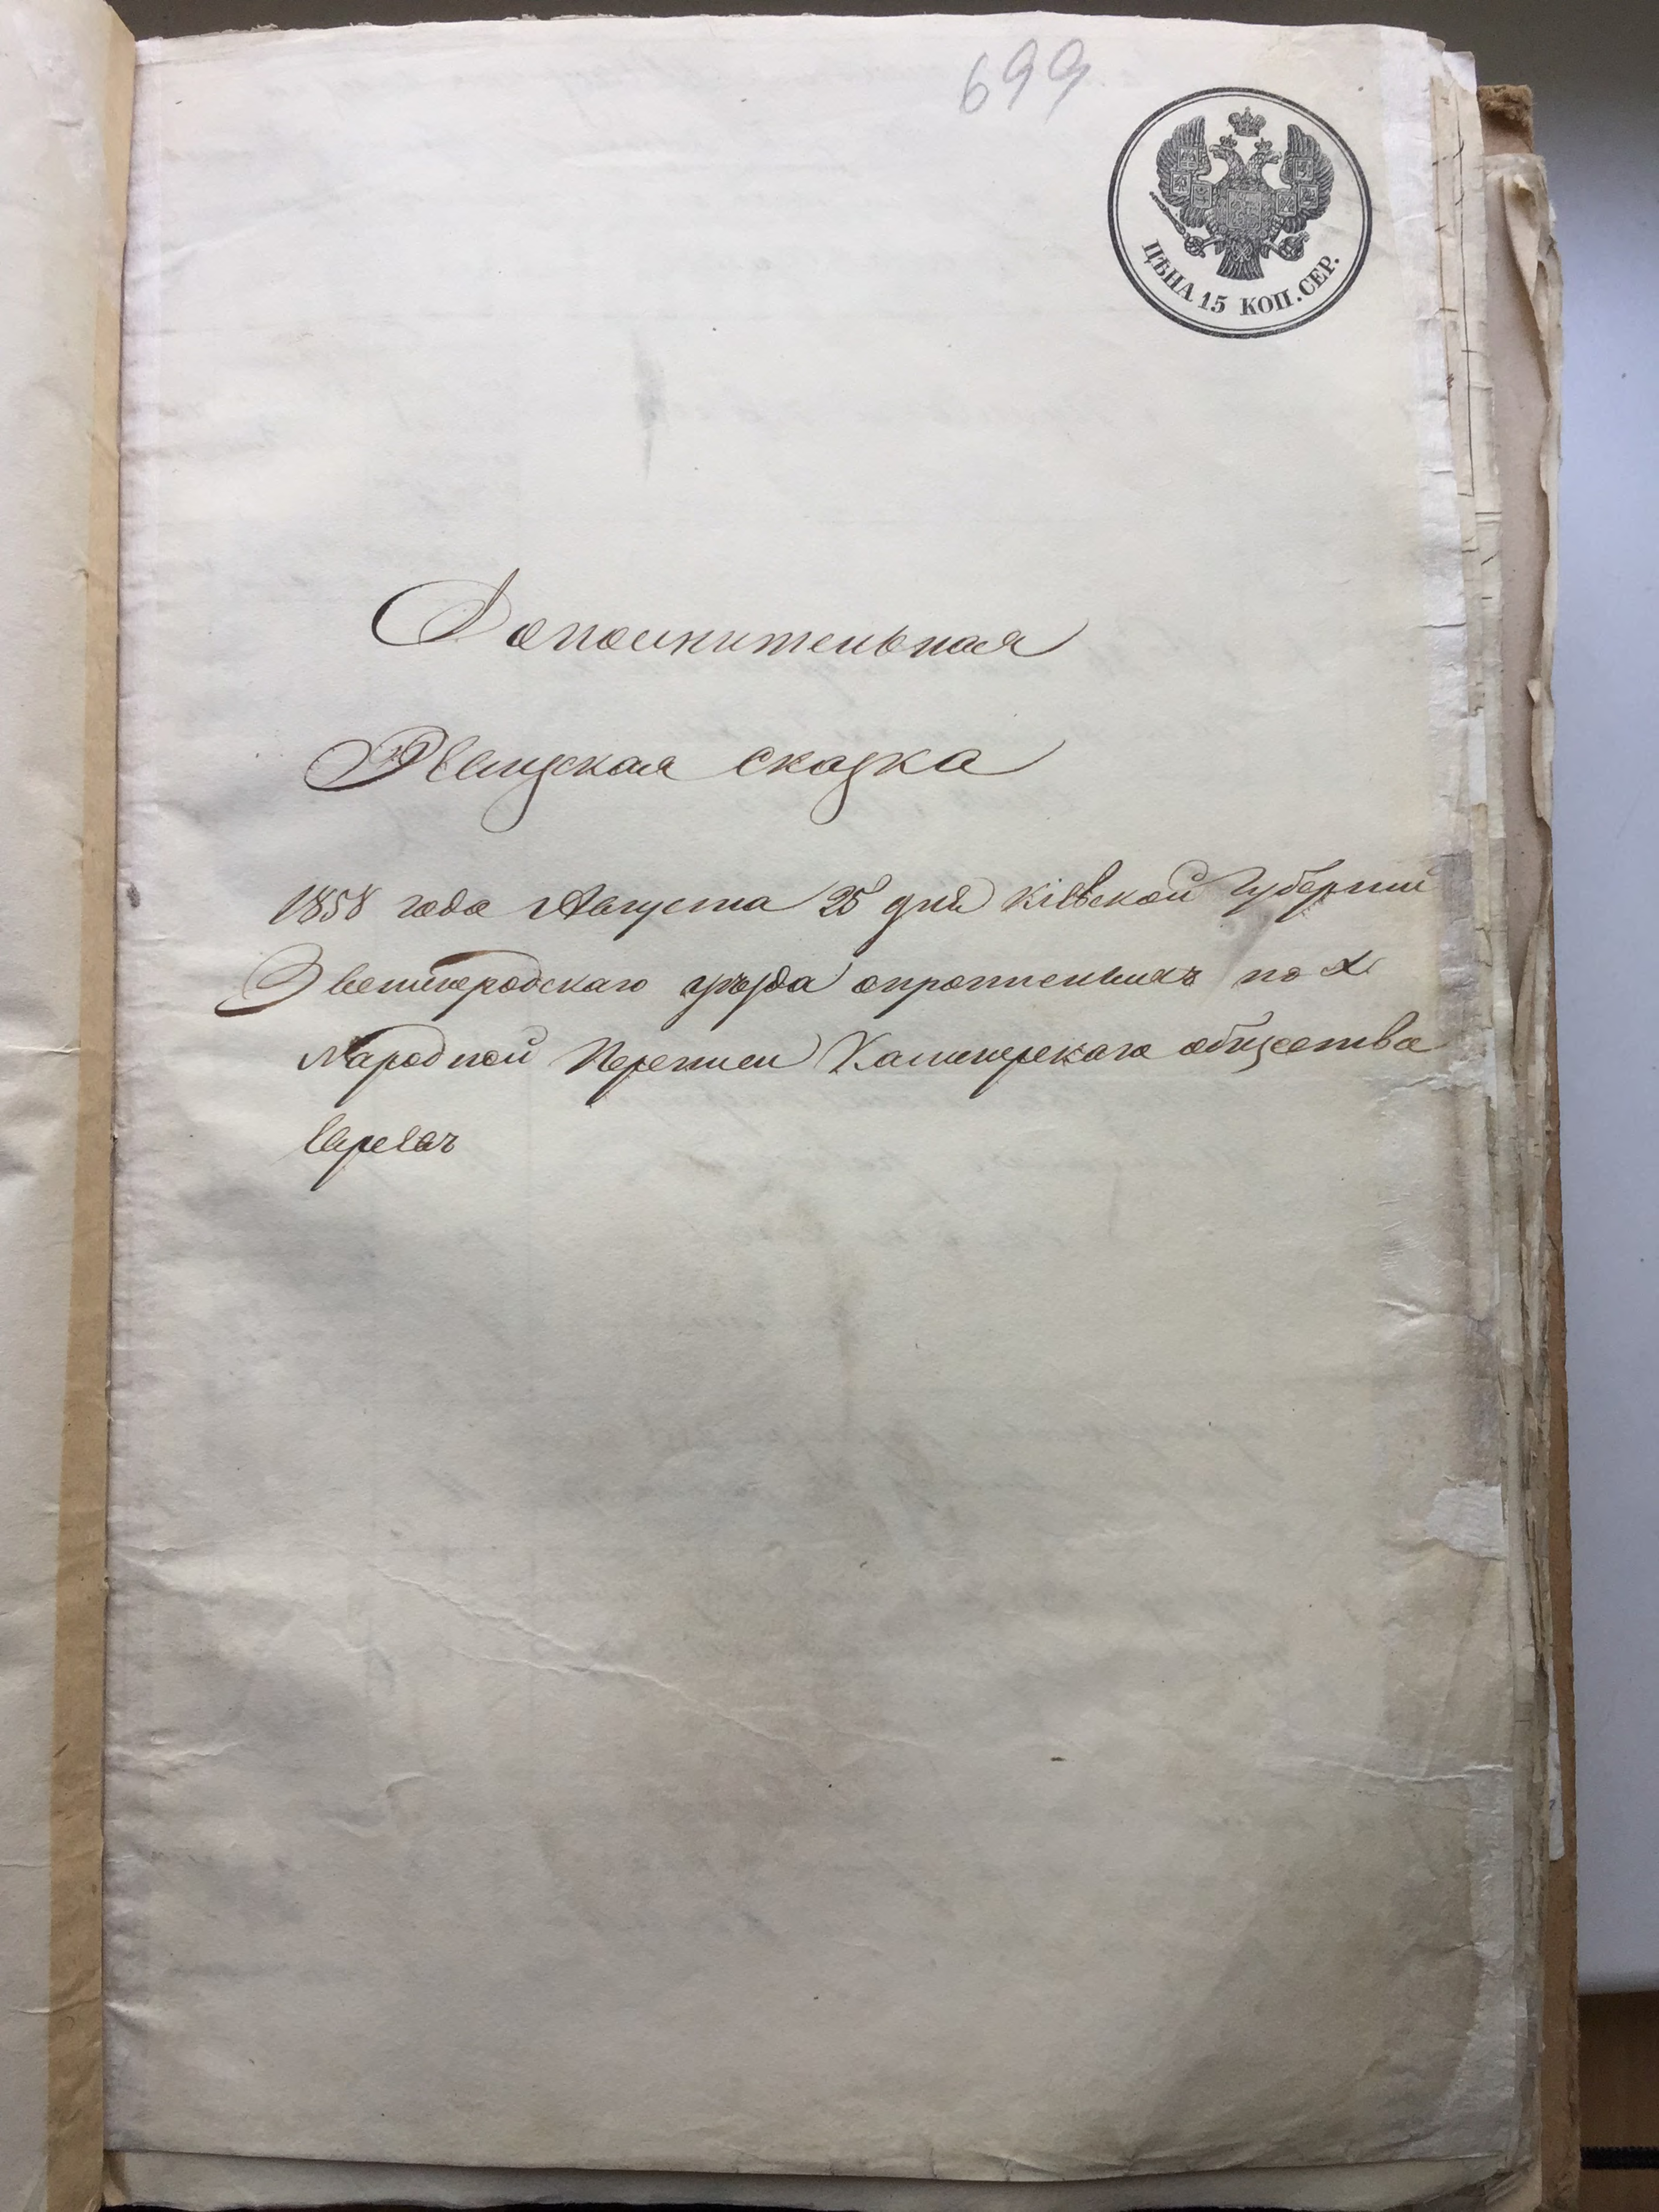 699
ЦѢНА 15 КОП. СЕР.
Дополнительная
Ревизская сказка
1858 года Августа 25 дня Кіевской Губерніи
Звенигородскаго уѣзда о пропшенныхъ по X
Народной Переписи общества
Евреевъ